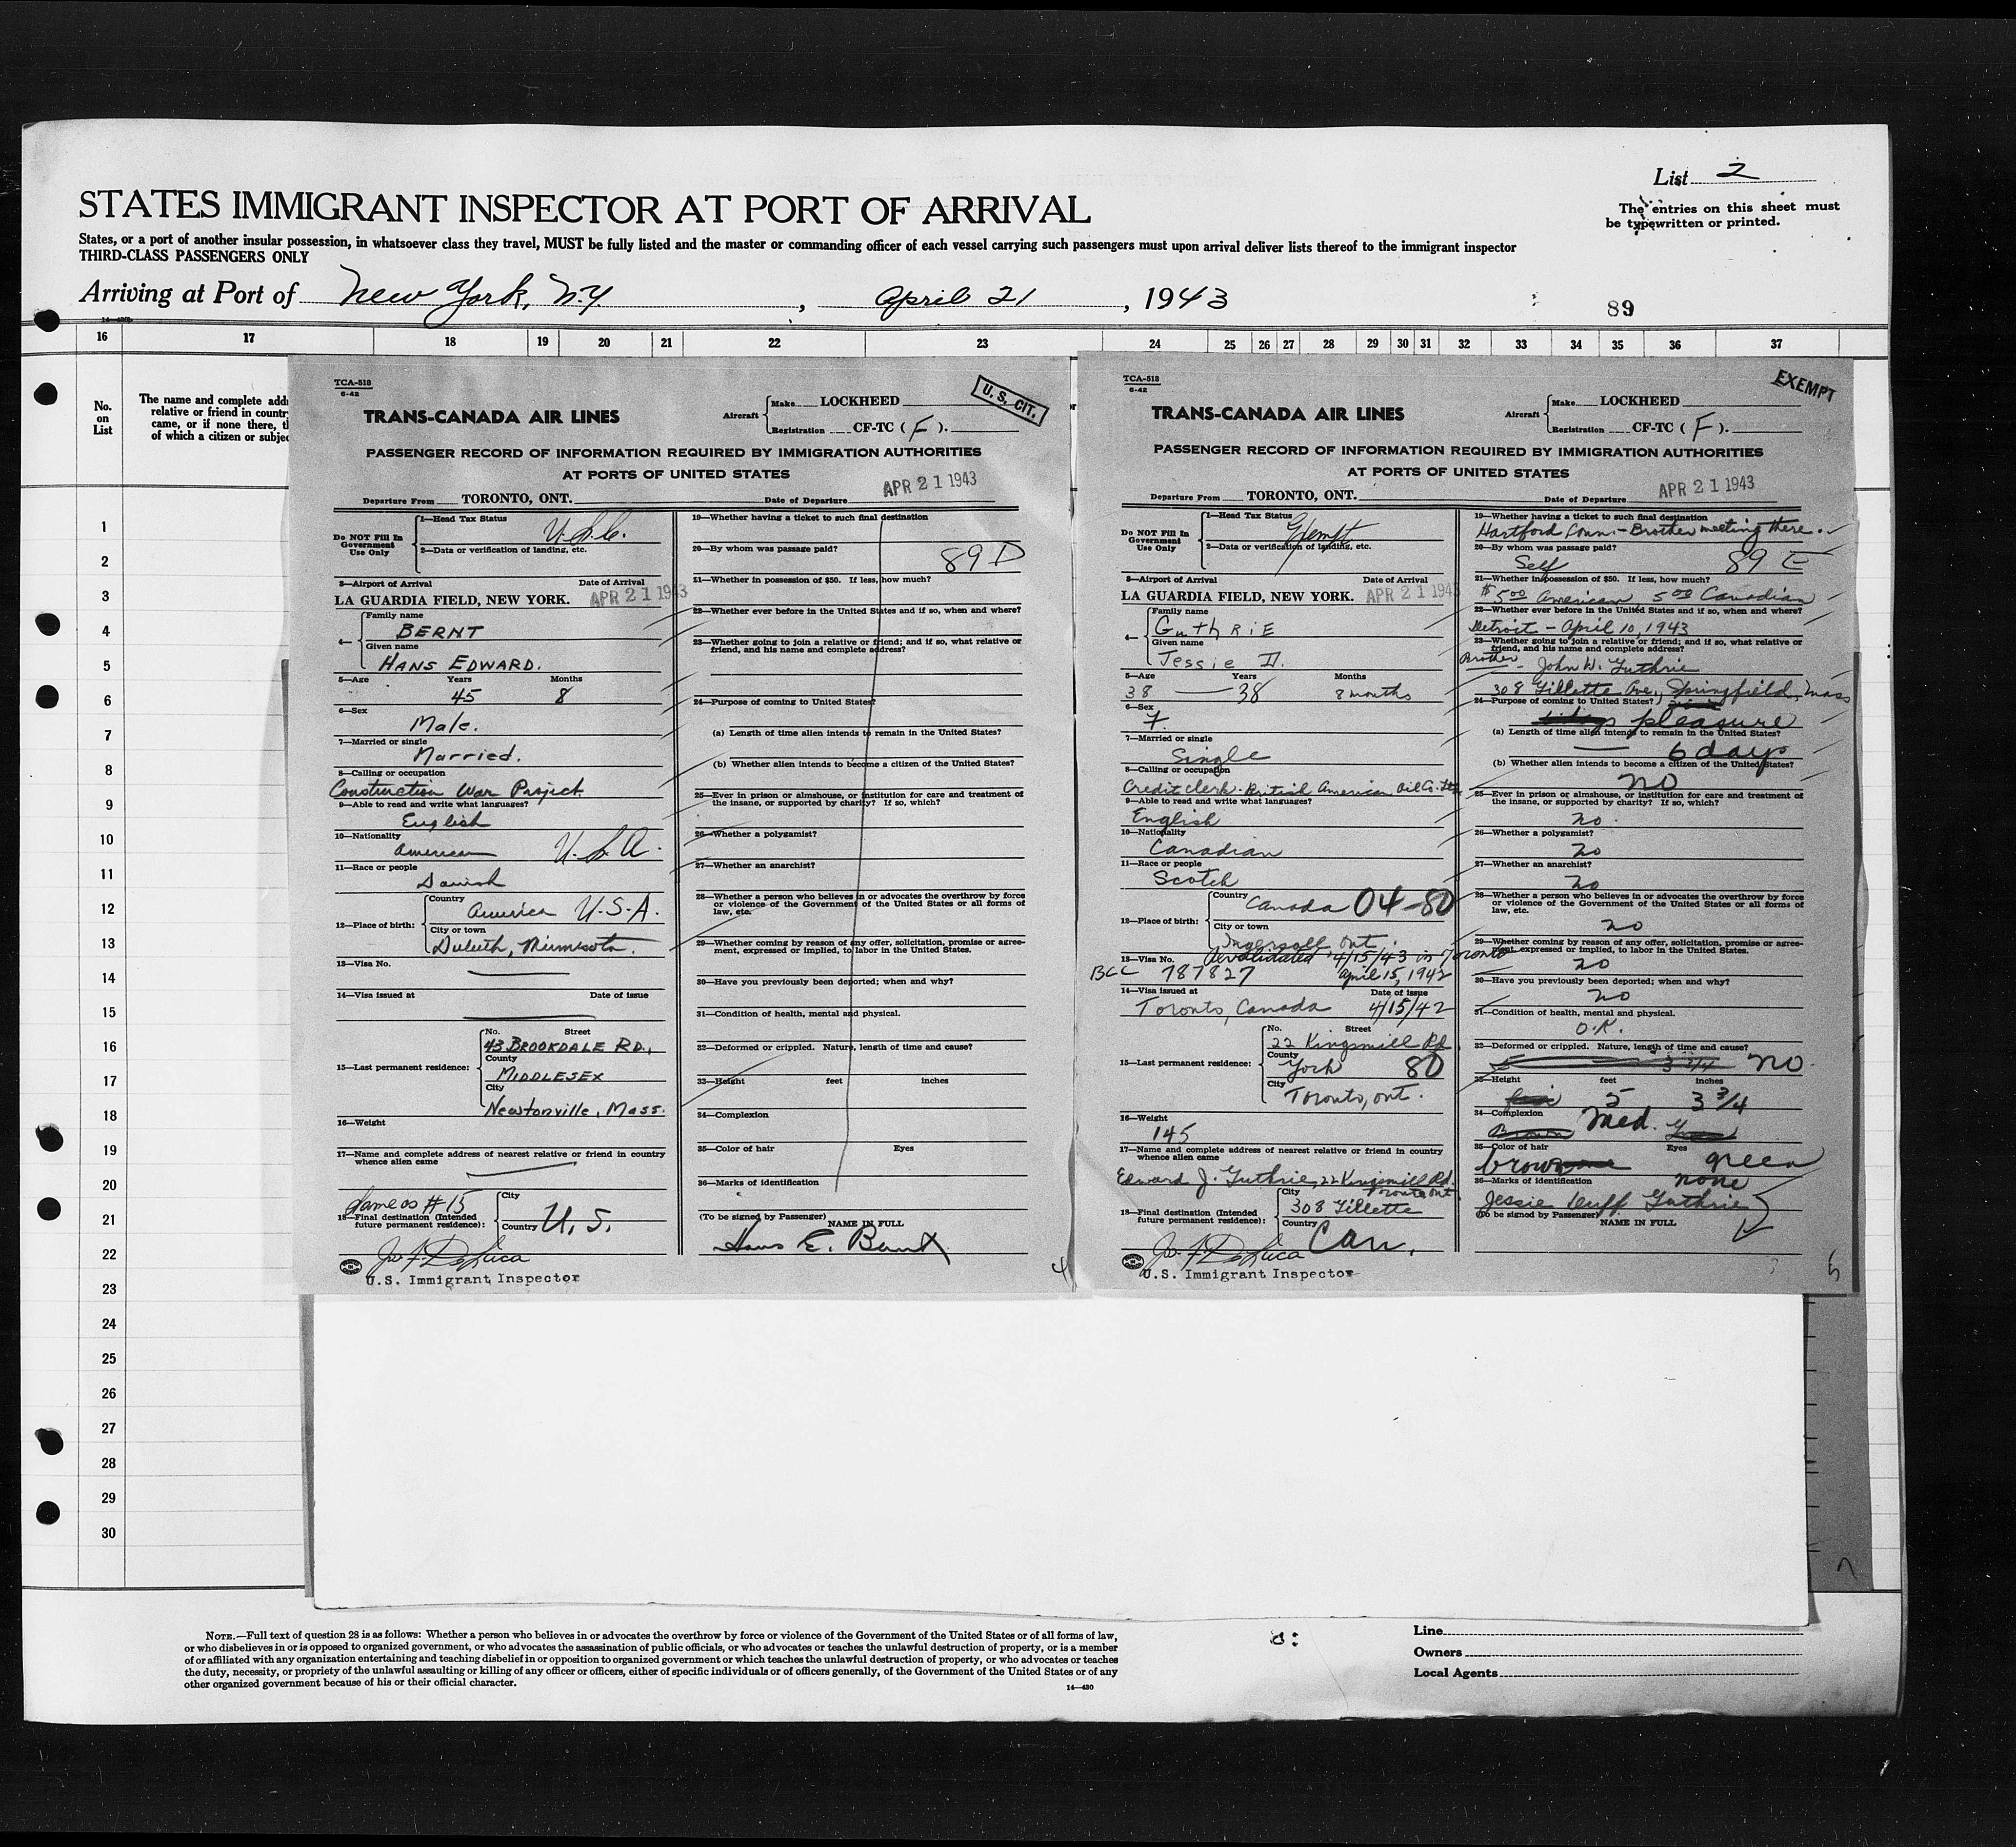 List 2
STATES IMMIGRANT INSPECTOR AT PORT OF ARRIVAL
The entries on this sheet must
be typewritten or printed.
States, or a port of another insular possession, in whatsoever class they travel, MUST be fully listed and the master or commanding officer of each vessel carrying such passengers must upon arrival deliver lists thereof to the immigrant inspector
THIRD-CLASS PASSENGERS ONLY
Arriving at Port of New York, N.Y. , April 21 , 1943
89
16 17 18 19 20 21 22 23 24 25 26 27 28 29 30 31 32 33 34 35 36 37
No.
on
List
The name and complete addr
relative or friend in countr
came, or if none there, t
of which a citizen or subjec
1
2
3
4
5
6
7
8
9
10
11
12
13
14
15
16
17
18
19
20
21
22
23
24
25
26
27
28
29
30
TCA-518
6-42
U. S. CIT.
TRANS-CANADA AIR LINES
Aircraft
Make LOCKHEED
Registration CF-TC ( F ).
PASSENGER RECORD OF INFORMATION REQUIRED BY IMMIGRATION AUTHORITIES
AT PORTS OF UNITED STATES
Departure From TORONTO, ONT. Date of Departure APR 21 1943
Do NOT Fill In
Government
Use Only
1—Head Tax Status
U.S.C.
2—Data or verification of landing, etc.
3—Airport of Arrival Date of Arrival
LA GUARDIA FIELD, NEW YORK. APR 21 1943
4—
Family name
BERNT
Given name
HANS EDWARD.
5—Age Years Months
45 8
6—Sex
Male.
7—Married or single
Married.
8—Calling or occupation
Construction War Project
9—Able to read and write what languages?
English
10—Nationality
American U.S.A.
11—Race or people
Danish
12—Place of birth:
Country
America U.S.A.
City or town
Duluth, Minnesota.
13—Visa No.
14—Visa issued at Date of issue
15—Last permanent residence:
No. Street
43 BROOKDALE RD.,
County
MIDDLESEX
City
Newtonville, Mass.
16—Weight
17—Name and complete address of nearest relative or friend in country
whence alien came
Same as #15
18—Final destination (Intended
future permanent residence):
City
Country U.S.
Jos. F. DeLuca
U.S. Immigrant Inspector
19—Whether having a ticket to such final destination
20—By whom was passage paid?
89 D
21—Whether in possession of $50. If less, how much?
22—Whether ever before in the United States and if so, when and where?
23—Whether going to join a relative or friend; and if so, what relative or
friend, and his name and complete address?
24—Purpose of coming to United States?
(a) Length of time alien intends to remain in the United States?
(b) Whether alien intends to become a citizen of the United States?
25—Ever in prison or almshouse, or institution for care and treatment of
the insane, or supported by charity? If so, which?
26—Whether a polygamist?
27—Whether an anarchist?
28—Whether a person who believes in or advocates the overthrow by force
or violence of the Government of the United States or all forms of
law, etc.
29—Whether coming by reason of any offer, solicitation, promise or agree-
ment, expressed or implied, to labor in the United States?
30—Have you previously been deported; when and why?
31—Condition of health, mental and physical.
32—Deformed or crippled. Nature, length of time and cause?
33—Height feet inches
34—Complexion
35—Color of hair Eyes
36—Marks of identification
(To be signed by Passenger) NAME IN FULL
Hans E. Bernt
4
TCA-518
6-42
EXEMPT
TRANS-CANADA AIR LINES
Aircraft
Make LOCKHEED
Registration CF-TC ( F ).
PASSENGER RECORD OF INFORMATION REQUIRED BY IMMIGRATION AUTHORITIES
AT PORTS OF UNITED STATES
Departure From TORONTO, ONT. Date of Departure APR 21 1943
Do NOT Fill In
Government
Use Only
1—Head Tax Status
Exempt
2—Data or verification of landing, etc.
3—Airport of Arrival Date of Arrival
LA GUARDIA FIELD, NEW YORK. APR 21 1943
4—
Family name
GuthRiE
Given name
Jessie D.
5—Age Years Months
38 — 38 8 months
6—Sex
F.
7—Married or single
Single
8—Calling or occupation
Credit clerk - British American Oil Co. Ltd
9—Able to read and write what languages?
English
10—Nationality
Canadian
11—Race or people
Scotch
12—Place of birth:
Country
Canada 04-80
City or town
Ingersoll Ont.
13—Visa No. Revalidated 4/15/43 in Toronto
BCC 787827 April 15, 1942
14—Visa issued at Date of issue
Toronto, Canada 4/15/42
15—Last permanent residence:
No. Street
22 Kingsmill Rd
County
York 80
City
Toronto, Ont.
16—Weight
145
17—Name and complete address of nearest relative or friend in country
whence alien came
Edward J. Guthrie, 22 Kingsmill Rd.
Toronto Ont.
18—Final destination (Intended
future permanent residence):
City
308 Gillette
Country Can.
Jos. F. DeLuca
U.S. Immigrant Inspector
19—Whether having a ticket to such final destination
Hartford Conn. - Brother meeting there.
20—By whom was passage paid?
Self 89 E
21—Whether in possession of $50. If less, how much?
$5.00 American 5.00 Canadian
22—Whether ever before in the United States and if so, when and where?
Detroit - April 10, 1943
23—Whether going to join a relative or friend; and if so, what relative or
friend, and his name and complete address?
Brother - John W. Guthrie
308 Gillette Ave., Springfield, Mass
24—Purpose of coming to United States?
pleasure
(a) Length of time alien intends to remain in the United States?
6 days
(b) Whether alien intends to become a citizen of the United States?
no
25—Ever in prison or almshouse, or institution for care and treatment of
the insane, or supported by charity? If so, which?
no.
26—Whether a polygamist?
no
27—Whether an anarchist?
no
28—Whether a person who believes in or advocates the overthrow by force
or violence of the Government of the United States or all forms of
law, etc.
no
29—Whether coming by reason of any offer, solicitation, promise or agree-
ment, expressed or implied, to labor in the United States?
no
30—Have you previously been deported; when and why?
no
31—Condition of health, mental and physical.
O.K.
32—Deformed or crippled. Nature, length of time and cause?
5 3 3/4 no.
33—Height feet inches
5 3 3/4
34—Complexion Med.
35—Color of hair Eyes
brown green
36—Marks of identification none
Jessie Duff Guthrie
(To be signed by Passenger) NAME IN FULL
5
NOTE.—Full text of question 28 is as follows: Whether a person who believes in or advocates the overthrow by force or violence of the Government of the United States or of all forms of law,
or who disbelieves in or is opposed to organized government, or who advocates the assassination of public officials, or who advocates or teaches the unlawful destruction of property, or is a member
of or affiliated with any organization entertaining and teaching disbelief in or opposition to organized government or which teaches the unlawful destruction of property, or who advocates or teaches
the duty, necessity, or propriety of the unlawful assaulting or killing of any officer or officers, either of specific individuals or of officers generally, of the Government of the United States or of any
other organized government because of his or their official character.
14—430
Line
Owners
Local Agents